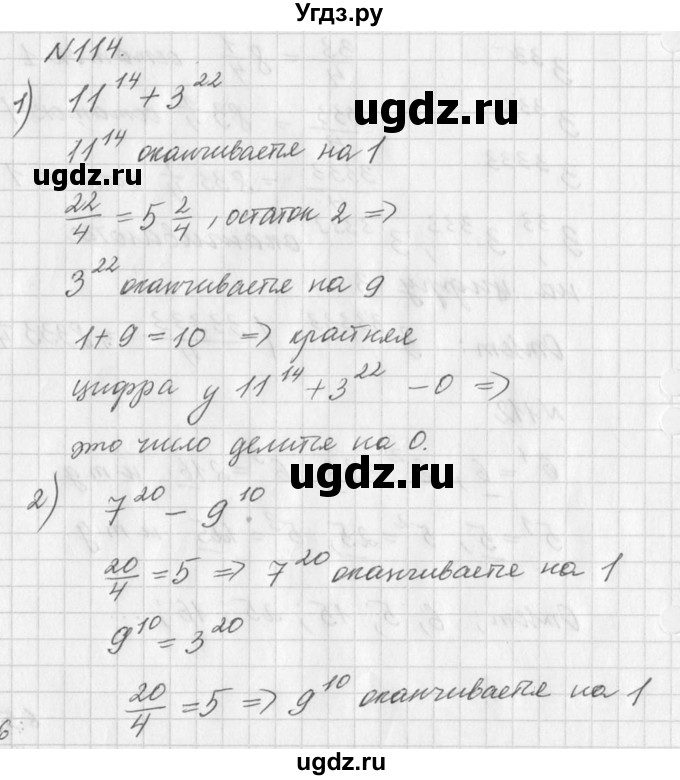 Угдз.ру
№114.
1) 11^14 + 3^22
11^14 оканчивается на 1
22/4 = 5 2/4, остаток 2 =>
3^22 оканчивается на 9
1+9=10 => крайняя
цифра у 11^14 + 3^22 - 0 =>
это число делится на 0.
2) 7^20 - 9^10
20/4 = 5 => 7^20 оканчивается на 1
9^10 = 3^20
20/4 = 5 => 9^10 оканчивается на 1
ugdz.ru
ugdz.ru
ugdz.ru
ugdz.ru
ugdz.ru
ugdz.ru
ugdz.ru